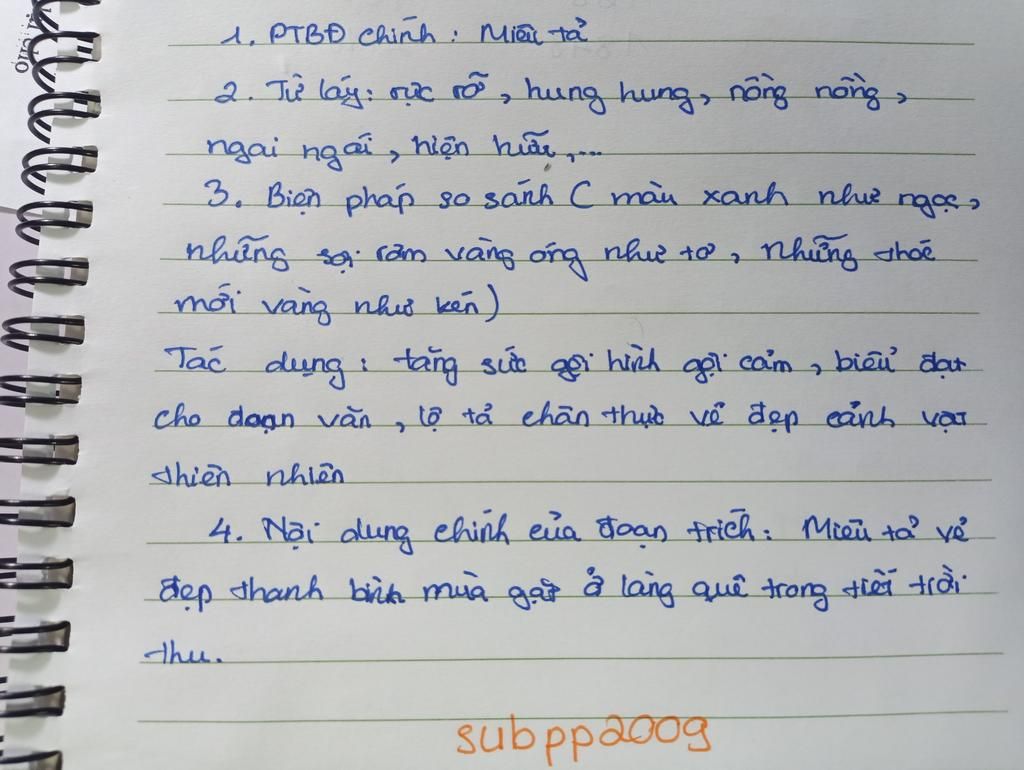 1. PTBĐ chính: Miêu tả
2. Từ láy: rực rỡ, hung hung, nồng nồng,
ngai ngái, hiện hữu,...
3. Biện pháp so sánh ( màu xanh như ngọc,
những sợi rơm vàng óng như tơ, những thóc
mới vàng như kén)
Tác dụng: tăng sức gợi hình gợi cảm, biểu đạt
cho đoạn văn, lột tả chân thực vẻ đẹp cảnh vật
thiên nhiên
4. Nội dung chính của đoạn trích: Miêu tả vẻ
đẹp thanh bình mùa gặt ở làng quê trong tiết trời
thu.
subpp2009